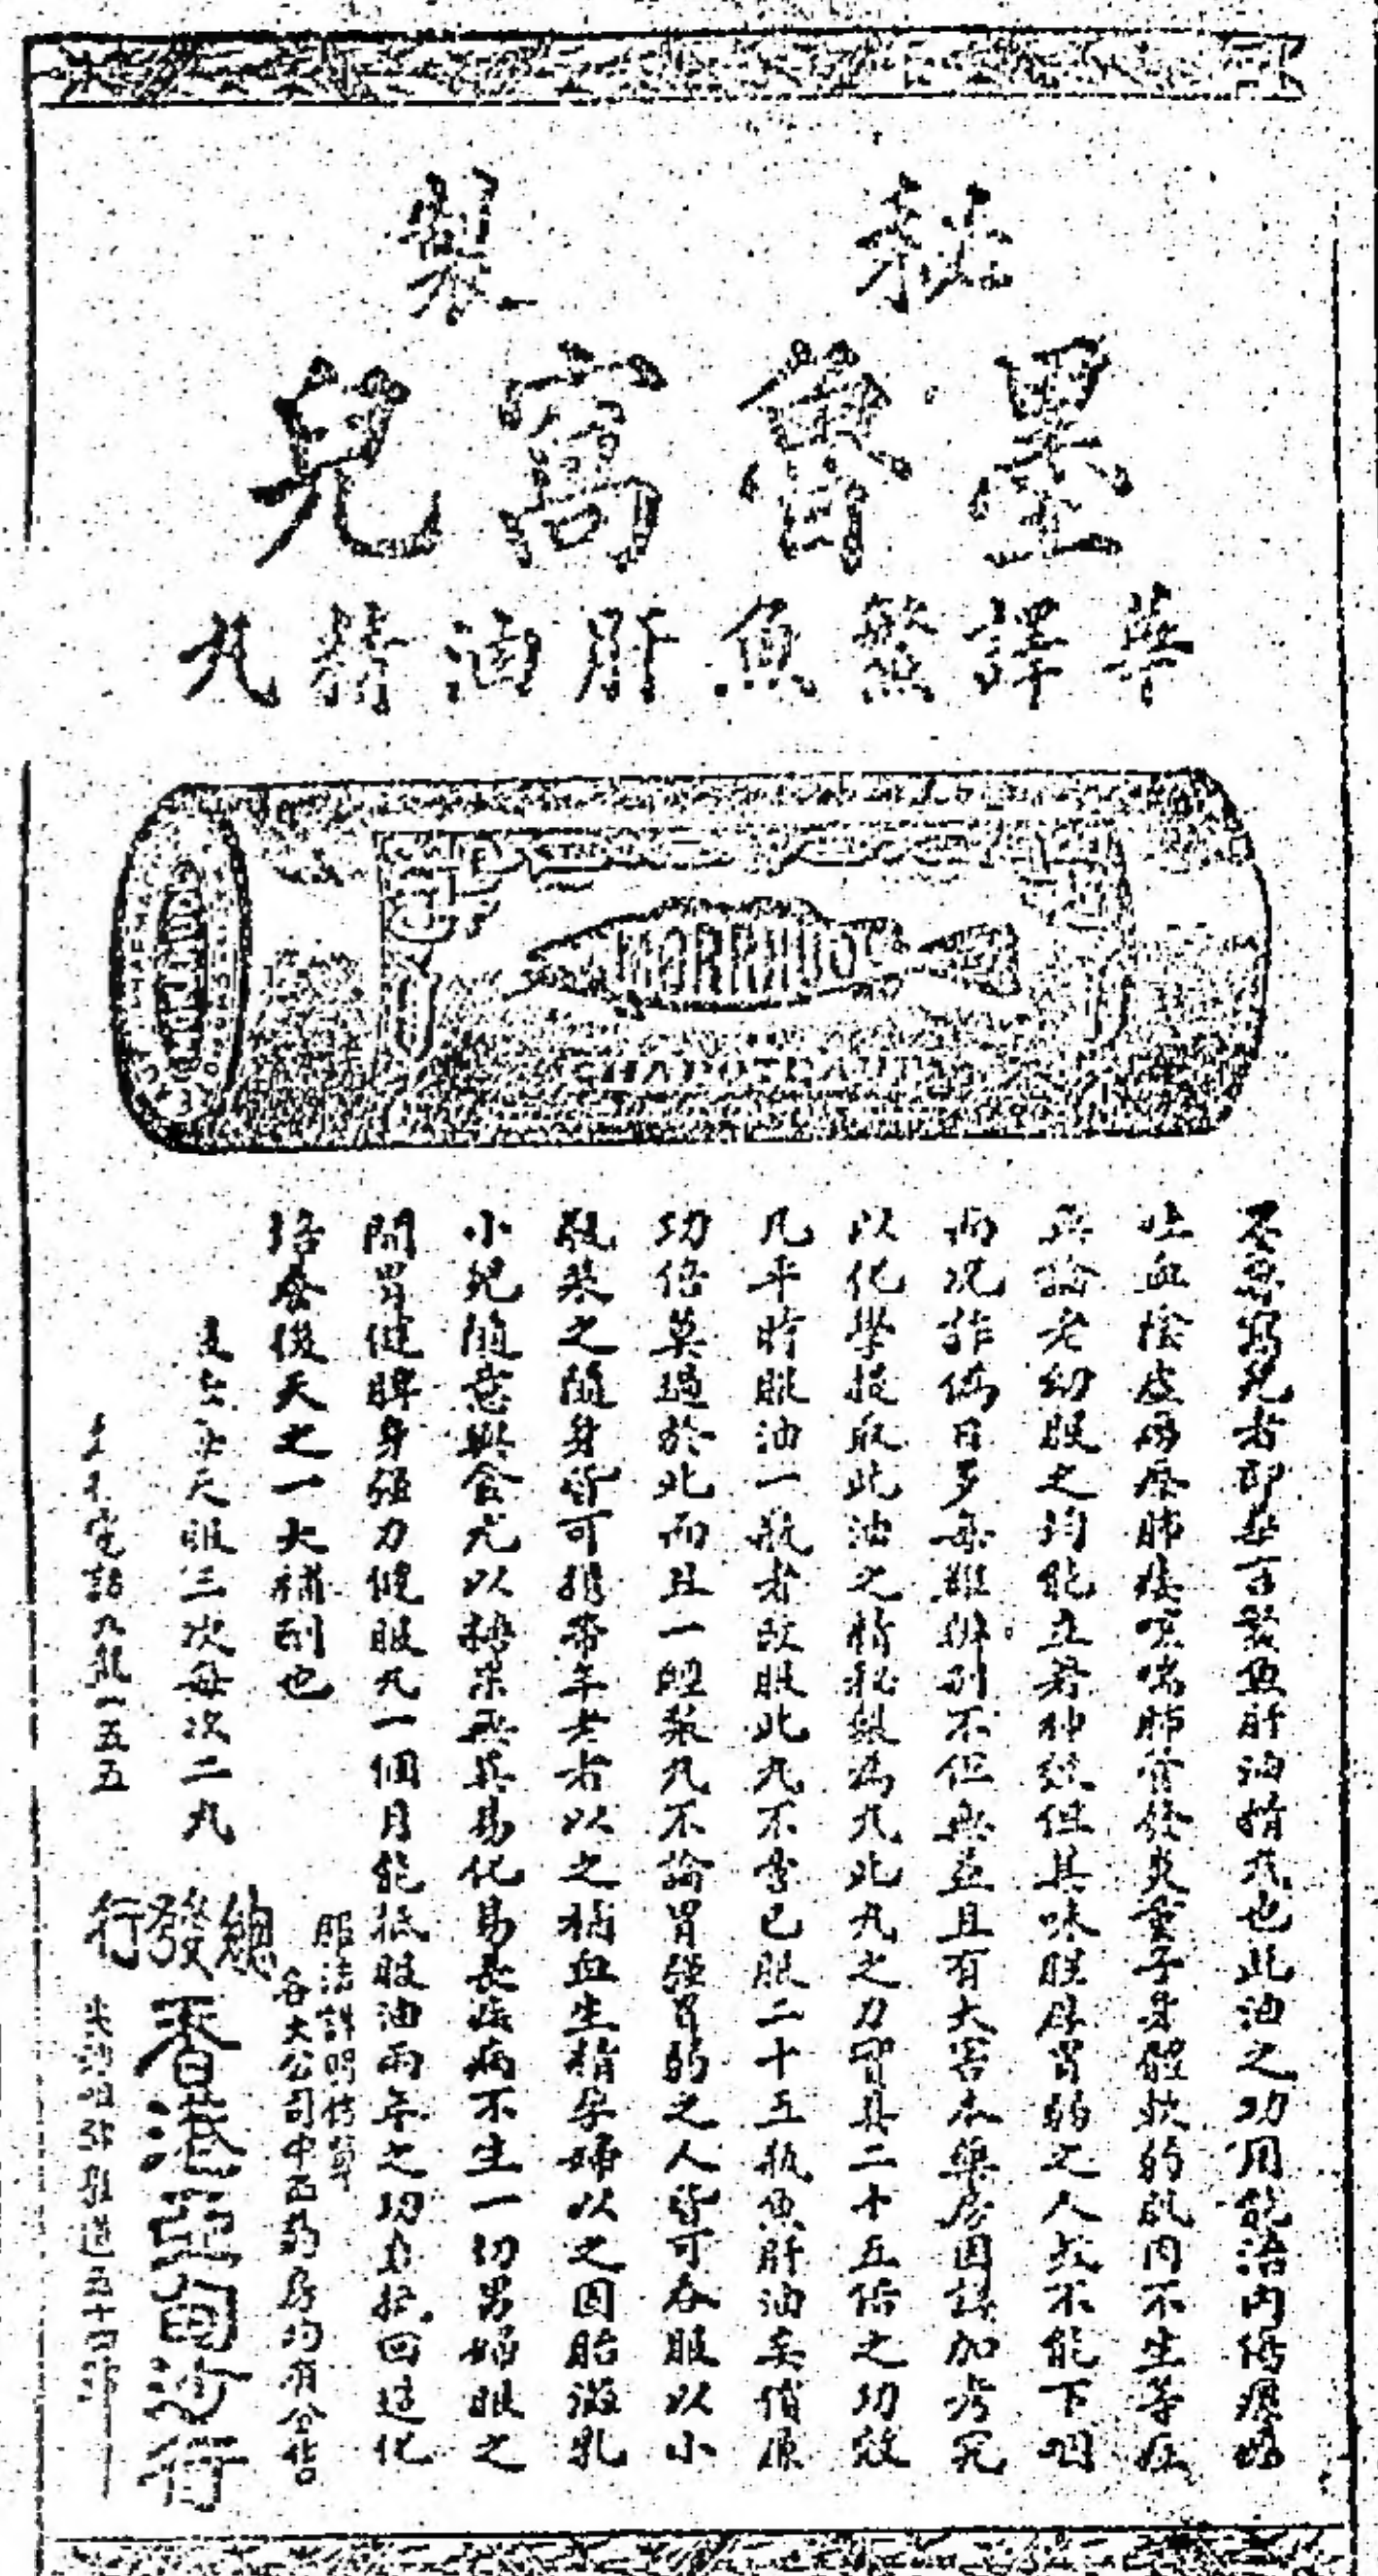 製
墨魯窩兒
華譯鰵魚肝油精丸
MORRHUOL
CHAPOTEAUT
窩兒者即是言鰵魚肝油精丸也此油之功用能治內傷
吐血陰虛癆瘵肺痿咳喘肺管炎童子身體軟弱肌肉不生等症
無論老幼服之均能立著神效但其味腥胃弱之人故不能下咽
而况詐偽日多每難辦別不但無益且有大害本藥房因詳加考究
以化學提取此油之精秘製為丸此丸之力實具二十五倍之功效
凡平時服油一瓶者改服此丸不啻已服二十五瓶魚肝油矣價廉
功倍莫過於此而且一經製丸不論胃強胃弱之人皆可吞服以小
瓶裝之隨身皆可攜帶年老者以之補血生精孕婦以之固胎滋乳
小兒隨意與食尤以糖菓無異易化易長疾病不生一切男婦服之
開胃健脾身強力健服丸一個月能抵服油兩年之功力挽回造化
培養後天之一大補劑也
每天服三次每次二丸
服法詳明仿單
各大公司中西藥房均有分售
總發行
香港亞甸沙行
電話九龍一五五
道五十四號